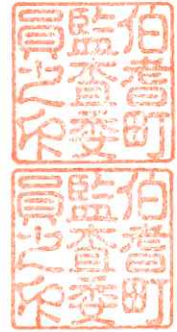 伯耆町
監査委
員之印
伯耆町
監査委
員之印